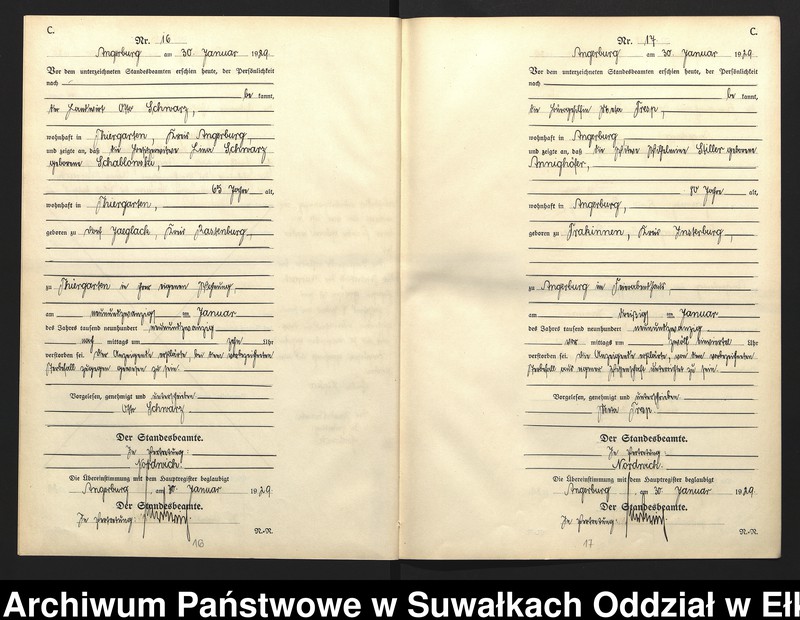 C.
Nr. 16
Angerburg am 30. Januar 1929.
Vor dem unterzeichneten Standesbeamten erschien heute, der Persönlichkeit
nach
be kannt,
der Landwirt Otto Schwarz,
wohnhaft in Thiergarten, Kreis Angerburg,
und zeigte an, daß die Lina Schwarz
geborene Schablowski,
65 Jahre alt,
wohnhaft in Thiergarten,
geboren zu Dorf Jaeglack, Kreis Rastenburg,
zu Thiergarten in ihrer eigenen Wohnung,
am neunundzwanzigsten Januar
des Jahres tausend neunhundert neunundzwanzig
nach mittags um zehn Uhr
verstorben sei. Der Anzeigende erklärte, bei dem vorbezeichneten
Sterbefall zugegen gewesen zu sein.
Vorgelesen, genehmigt und unterschrieben
Otto Schwarz
Der Standesbeamte.
In Vertretung:
Nordwich.
Die Übereinstimmung mit dem Hauptregister beglaubigt
Angerburg am 30. Januar 1929.
Der Standesbeamte.
In Vertretung:
N.-R.
16
C.
Nr. 17
Angerburg am 30. Januar 1929.
Vor dem unterzeichneten Standesbeamten erschien heute, der Persönlichkeit
nach
be kannt,
die Meta Tresp,
wohnhaft in Angerburg,
und zeigte an, daß die Witwe Wilhelmine Stiller geborene
Annighöfer,
80 Jahre alt,
wohnhaft in Angerburg,
geboren zu Trakinnen, Kreis Insterburg,
zu Angerburg im Feierabendhaus,
am dreißigsten Januar
des Jahres tausend neunhundert neunundzwanzig
vor mittags um Uhr
verstorben sei. Die Anzeigende erklärte, von dem vorbezeichneten
Sterbefall aus eigener Wissenschaft unterrichtet zu sein.
Vorgelesen, genehmigt und unterschrieben
Meta Tresp.
Der Standesbeamte.
In Vertretung
Nordwich.
Die Übereinstimmung mit dem Hauptregister beglaubigt
Angerburg, am 30. Januar 1929.
Der Standesbeamte.
In Vertretung:
N.-R.
17
Archiwum Państwowe w Suwałkach Oddział w Ełk